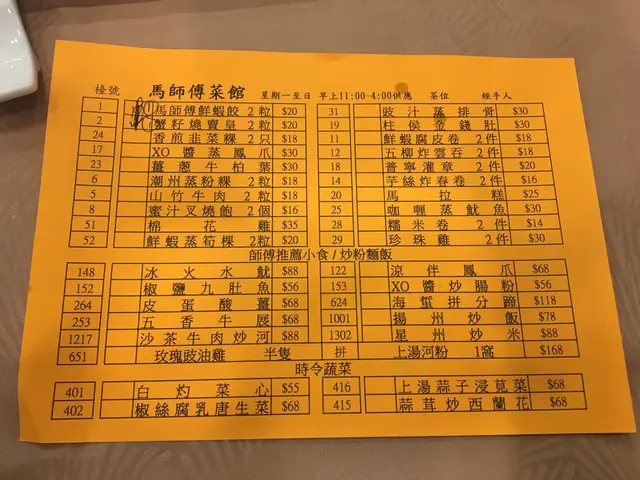 檯號 馬師傅菜館 星期一至日 早上11:00-4:00供應 茶位 經手人
1 馬師傅鮮蝦餃 2粒 $20 31 豉汁蒸排骨 $30
2 蟹籽燒賣皇 2粒 $20 19 柱侯金錢肚 $30
24 香煎韭菜粿 2只 $18 11 鮮蝦腐皮卷 2件 $18
17 XO醬蒸鳳爪 $30 12 五柳炸雲吞 2件 $18
23 薑蔥牛柏葉 $30 18 普寧灌章 2件 $20
6 潮州蒸粉粿 2粒 $18 14 芋絲炸春卷 2件 $16
5 山竹牛肉 2粒 $18 20 馬拉糕 $25
8 蜜汁叉燒飽 2個 $16 25 咖喱蒸魷魚 $30
51 棉花雞 $35 28 糯米卷 2件 $14
52 鮮蝦蒸筍粿 2粒 $20 29 珍珠雞 2件 $30
師傅推薦小食/炒粉麵飯
148 冰火水魷 $88 122 涼伴鳳爪 $68
152 椒鹽九肚魚 $56 153 XO醬炒腸粉 $56
264 皮蛋酸薑 $68 624 海蜇拼分蹄 $118
253 五香牛展 $68 1001 揚州炒飯 $78
1217 沙茶牛肉炒河 $88 1302 星州炒米 $88
651 玫瑰豉油雞 半隻 拼 上湯河粉 1窩 $168
時令蔬菜
401 白灼菜心 $55 416 上湯蒜子浸莧菜 $68
402 椒絲腐乳唐生菜 $68 415 蒜茸炒西蘭花 $68